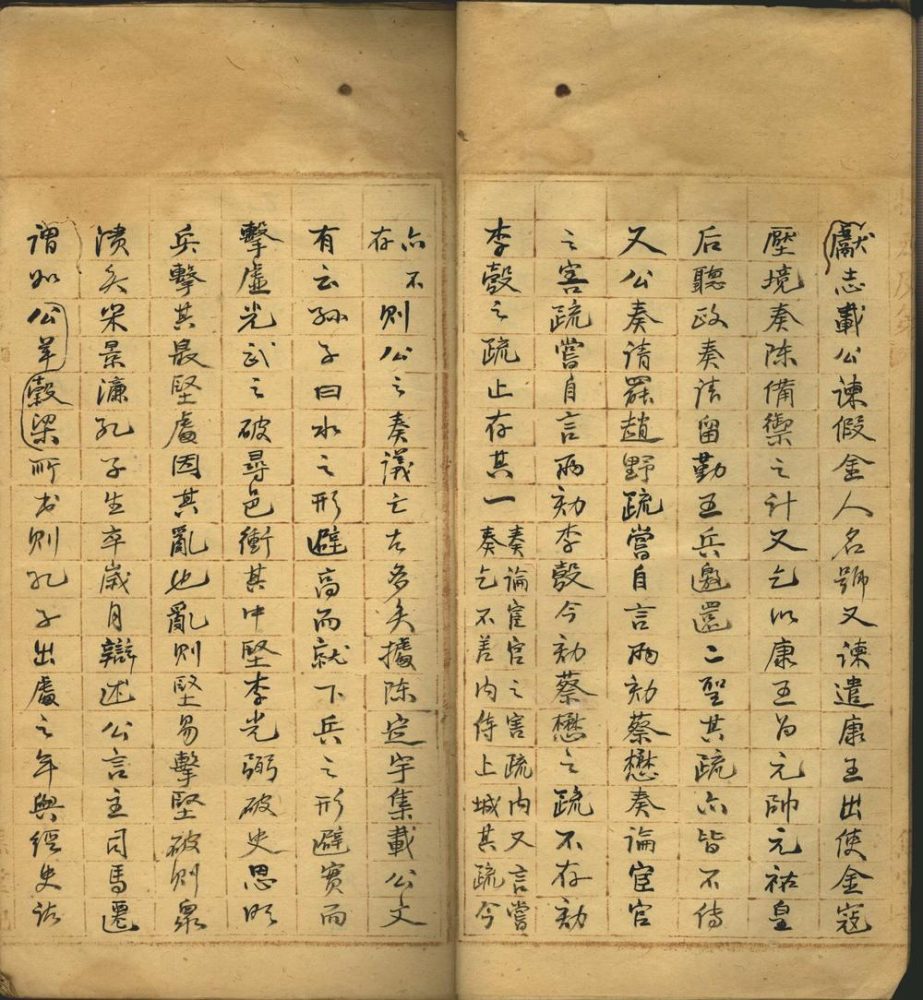 獻志載公諫假金人名號又諫遣康王出使金寇
壓境奏陳備禦之計又乞以康王為元帥元祐皇
后聽政奏請留勤王兵邀還二聖其疏亦皆不傳
又公奏請罷趙野疏嘗自言兩劾蔡懋奏論宦官
之害疏嘗自言兩劾李嗀今劾蔡懋之疏不存劾
李嗀之疏止存其一奏論宦官之害疏内又言嘗
奏乞不差内侍上城其疏今
亦不
存則公之奏議亡者多矣據陳定宇集載公文
有云孫子曰水之形避高而就下兵之形避實而
擊虛光武之破尋邑衝其中堅李光弼破史思明
兵擊其最堅處因其亂也亂則堅易擊堅破則衆
潰矣宋景濂孔子生卒歲月辯述公言主司馬遷
謂如公羊穀梁所書則孔子出處之年與經史諸